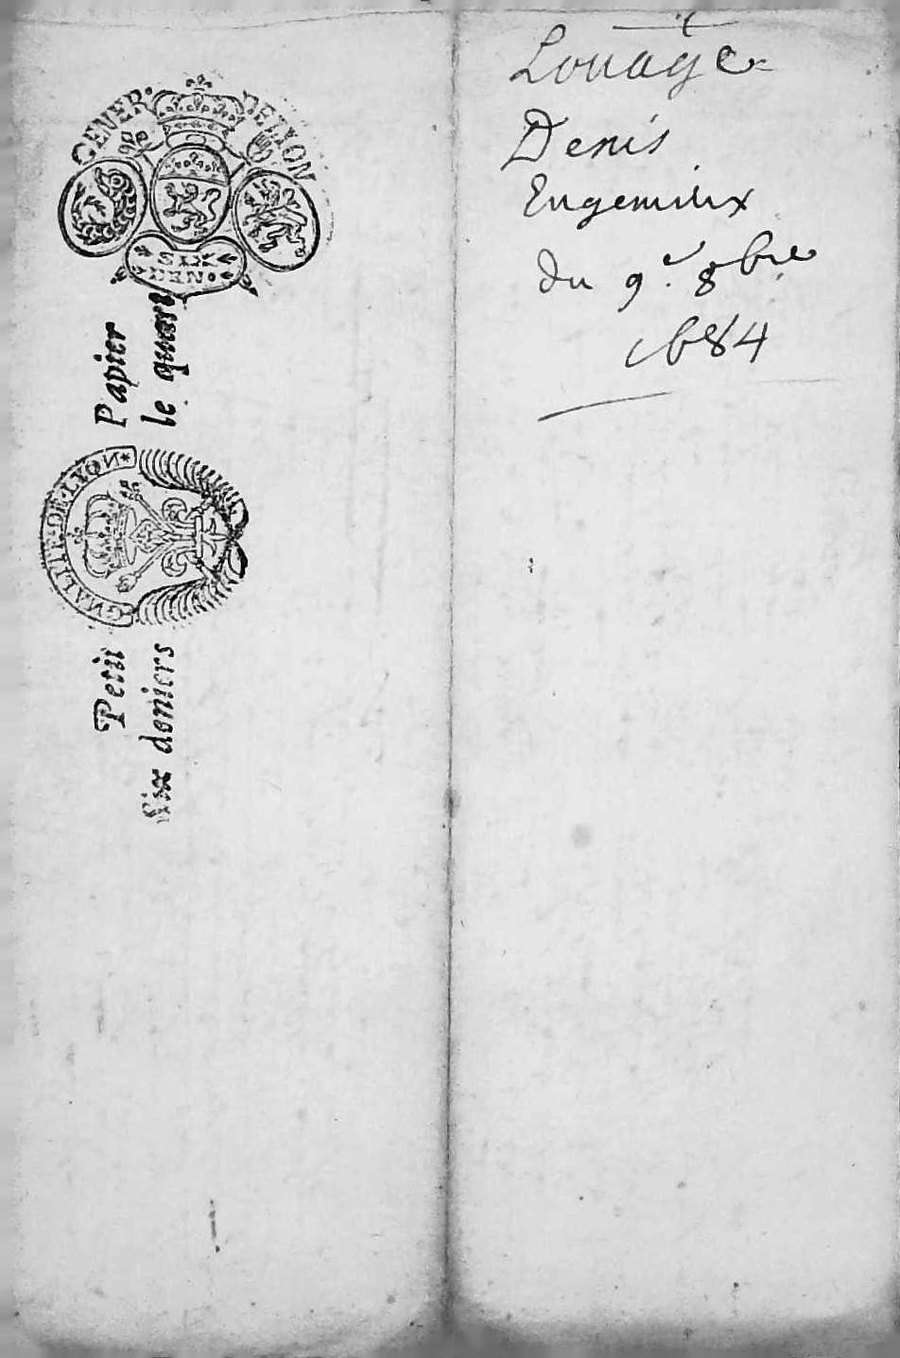 GENER· DE LYON
SIX
DEN·
Papier
le quart
GNALITE·DE·LYON*
Petit
Six deniers
Louage
Denis
du 9e 8bre
1684